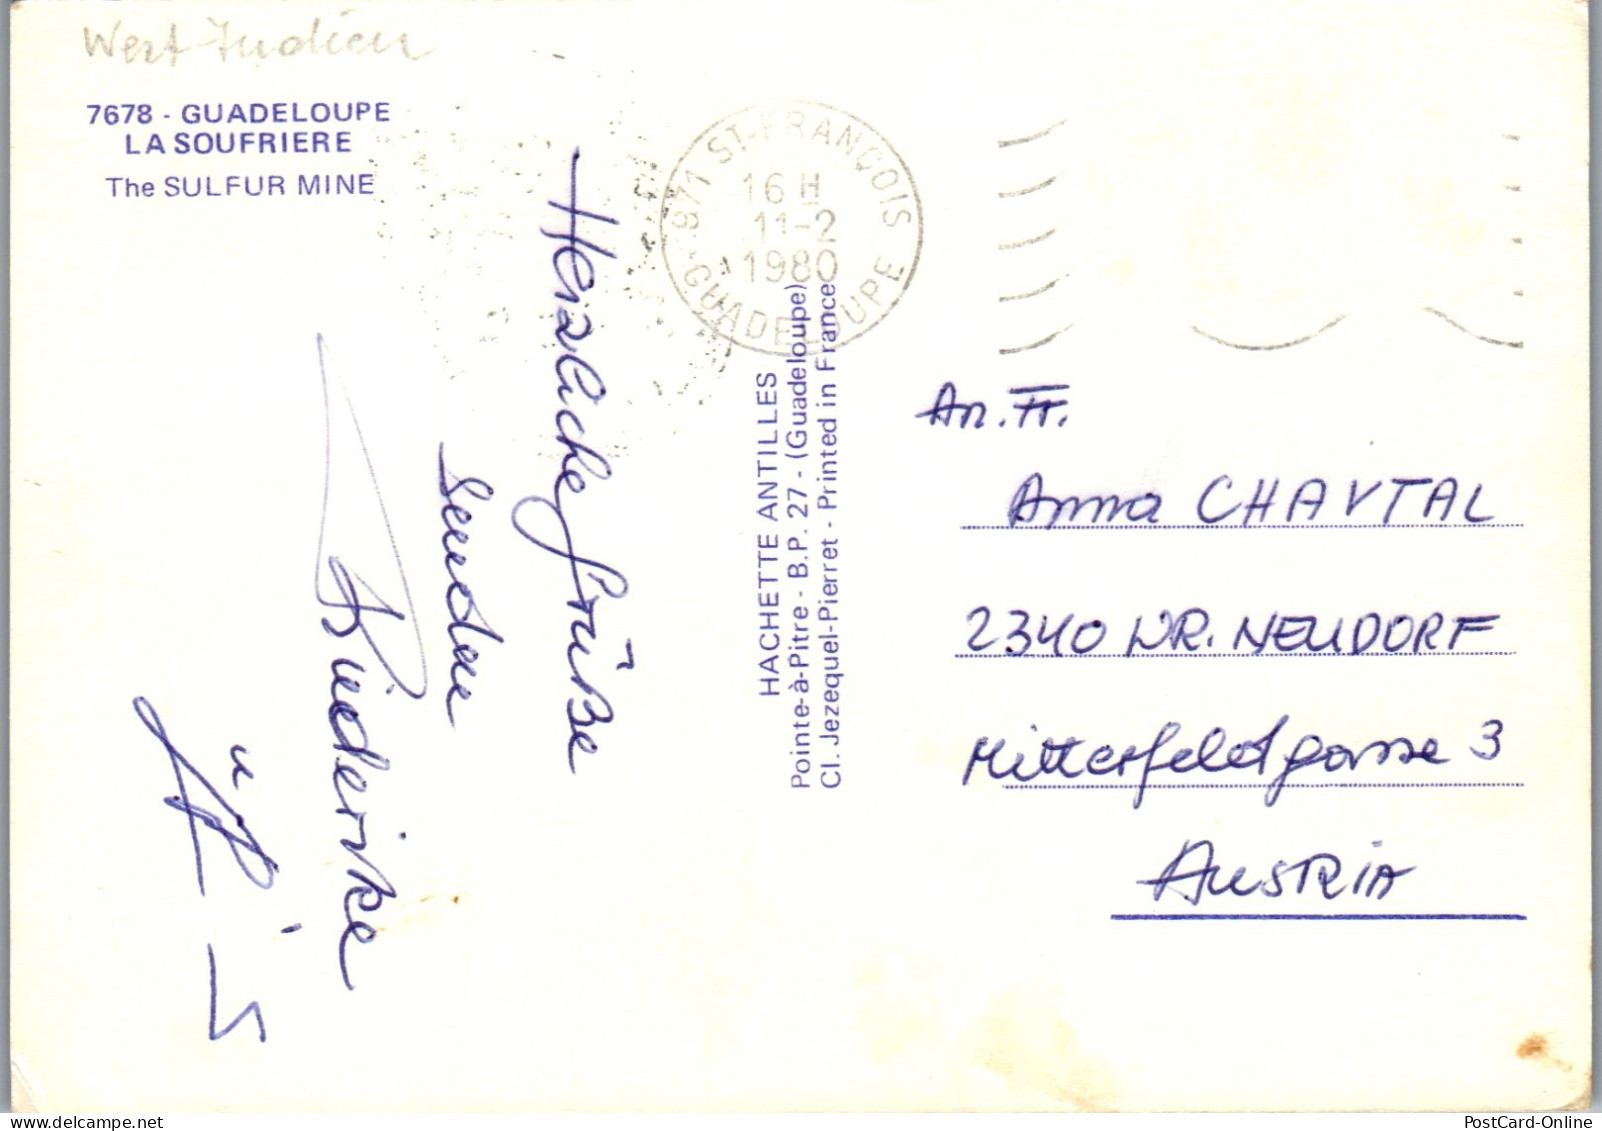 West-Indien
7678 - GUADELOUPE
LA SOUFRIERE
The SULFUR MINE
971 ST-FRANÇOIS
16 H
11-2
1980
GUADELOUPE
Herzliche Grüße
senden
Friederike
u.
HACHETTE ANTILLES
Pointe-à-Pitre - B.P. 27 - (Guadeloupe)
Cl. Jezequel-Pierret - Printed in France
An. Fr.
Anna CHAVTAL
2340 WR. NEUDORF
Mitterfeldgasse 3
AUSTRIA
PostCard-Online